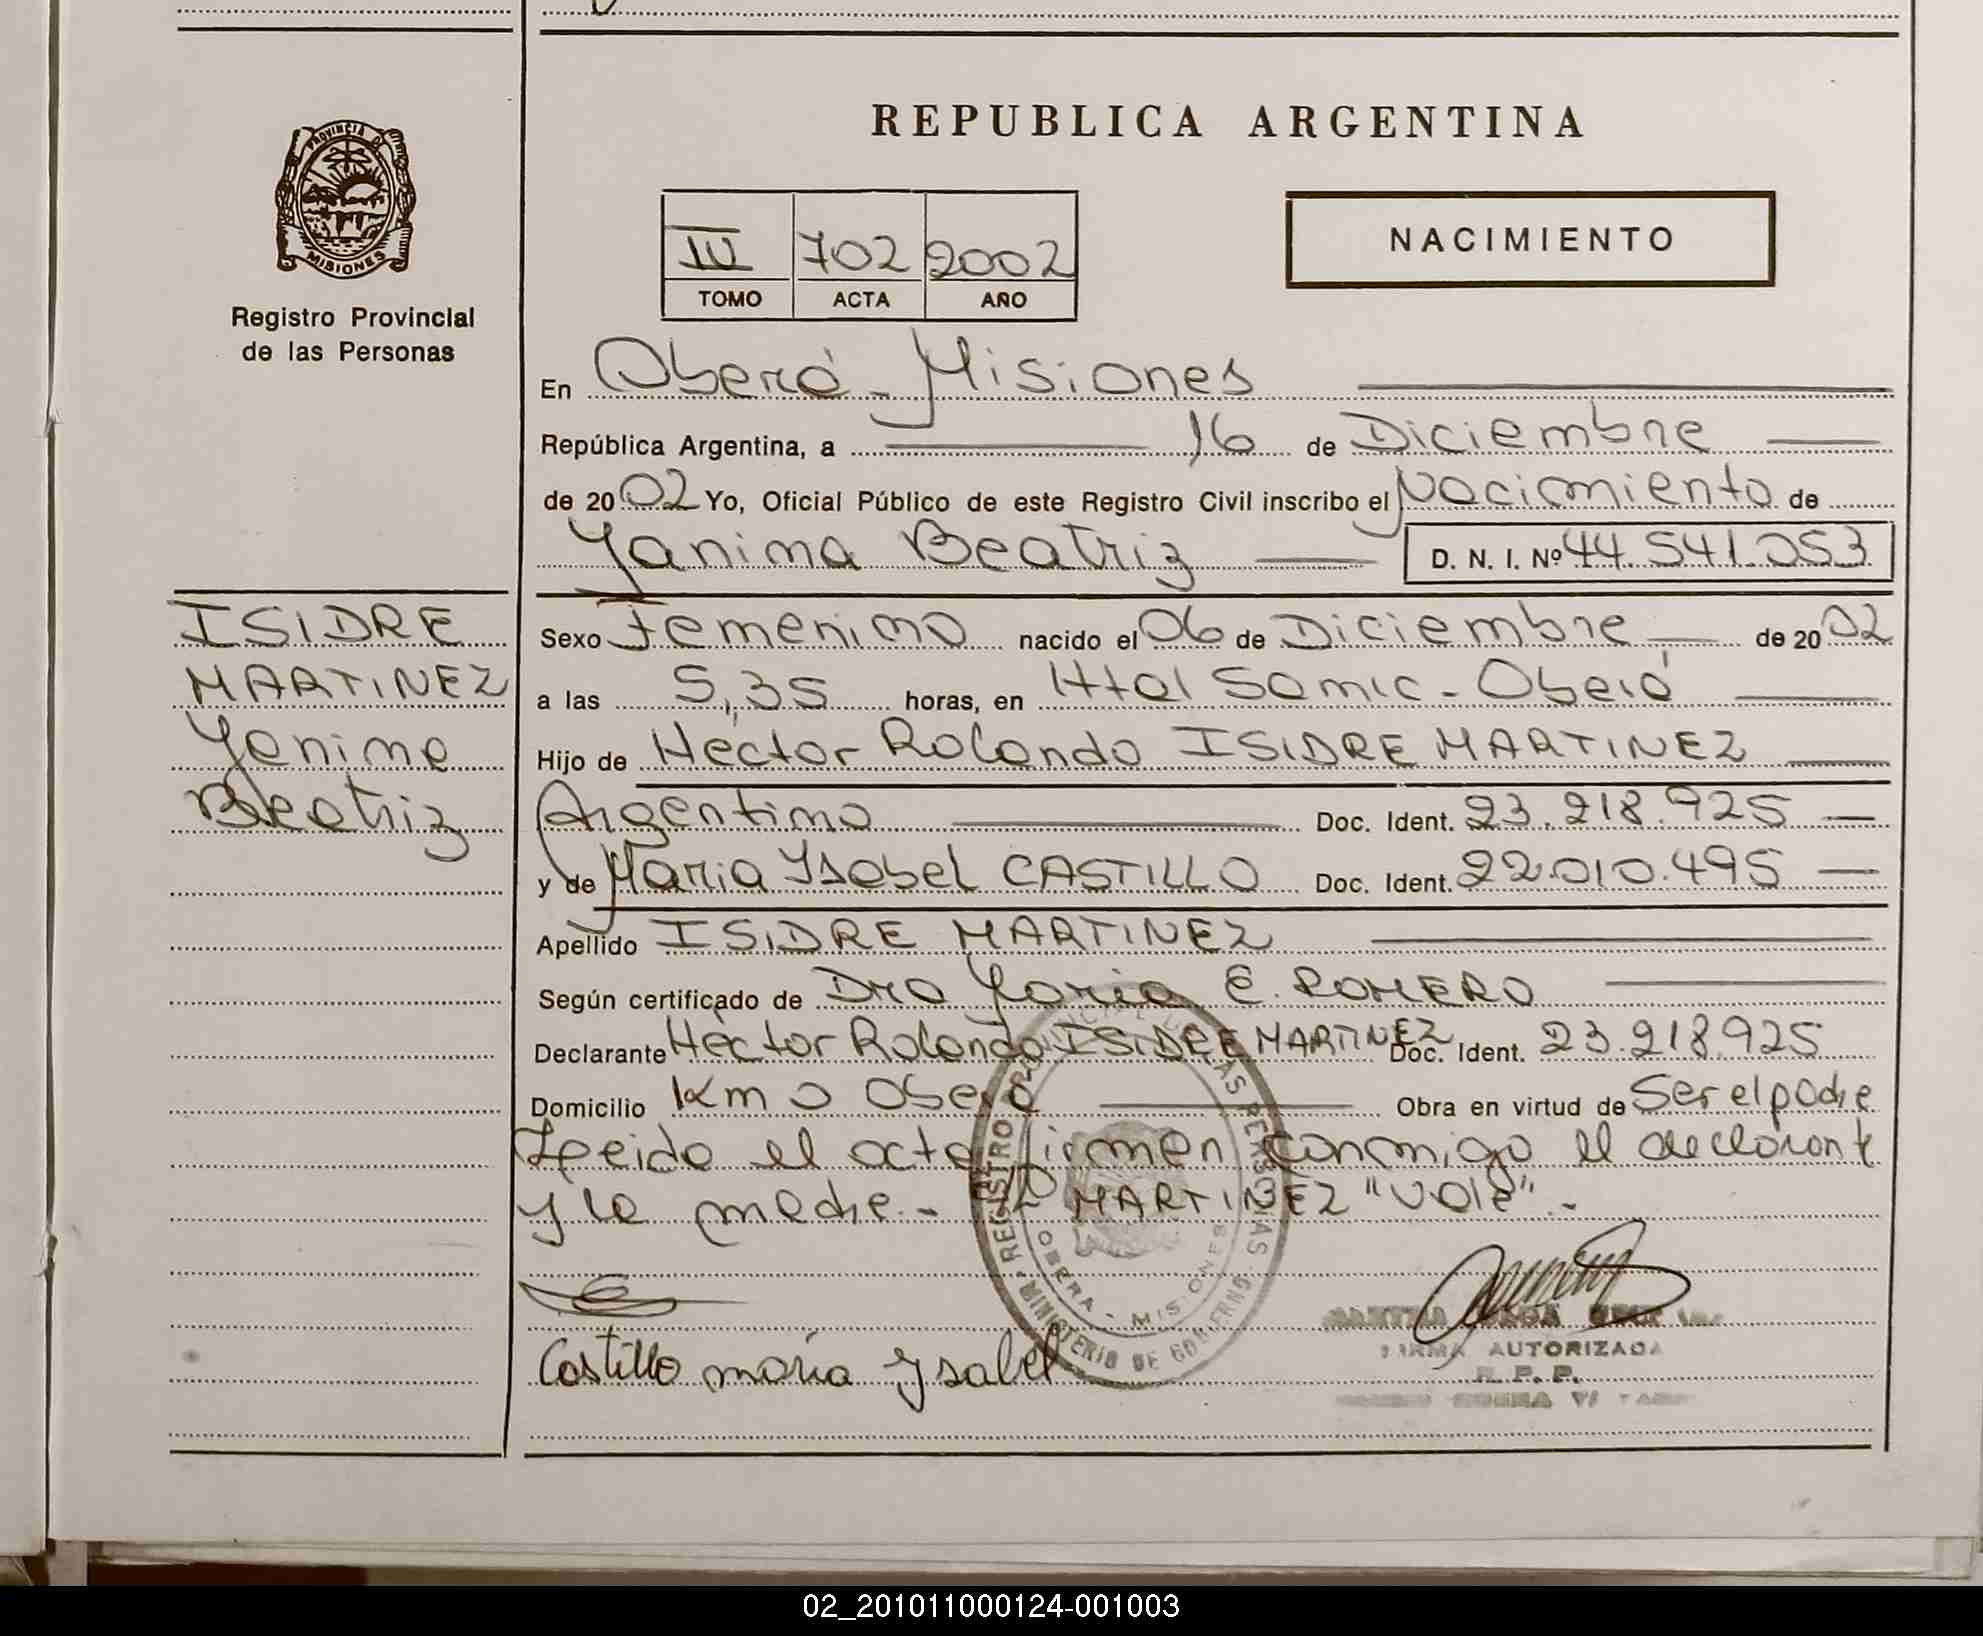 PROVINCIA DE
MISIONES
Registro Provincial
de las Personas
REPUBLICA ARGENTINA
IV 702 2002
TOMO ACTA AÑO
NACIMIENTO
En Oberá - Misiones
República Argentina, a 16 de Diciembre
de 2002 Yo, Oficial Público de este Registro Civil inscribo el Nacimiento de
Yanina Beatriz D. N. I. Nº 44.541.053
ISIDRE
MARTINEZ
Yanina
Beatriz
Sexo Femenino nacido el 06 de Diciembre de 2002
a las 5,35 horas, en Htal Samic - Oberá
Hijo de Héctor Rolando ISIDRE MARTINEZ
Argentino Doc. Ident. 23.218.925
y de Maria Ysabel CASTILLO Doc. Ident. 22.010.495
Apellido ISIDRE MARTINEZ
Según certificado de Dra E. ROMERO
Declarante Héctor Rolando ISIDRE MARTINEZ Doc. Ident. 23.218.925
Domicilio Km 0 Oberá Obra en virtud de Ser el padre
Leida el acta firman conmigo el declarante
y la madre.- MARTINEZ "Vale".-
REGISTRO PROVINCIAL DE LAS PERSONAS
MINISTERIO DE GOBIERNO
OBERA - MISIONES
Castillo maria Ysabel
FIRMA AUTORIZADA
R. P. P.
02_201011000124-001003